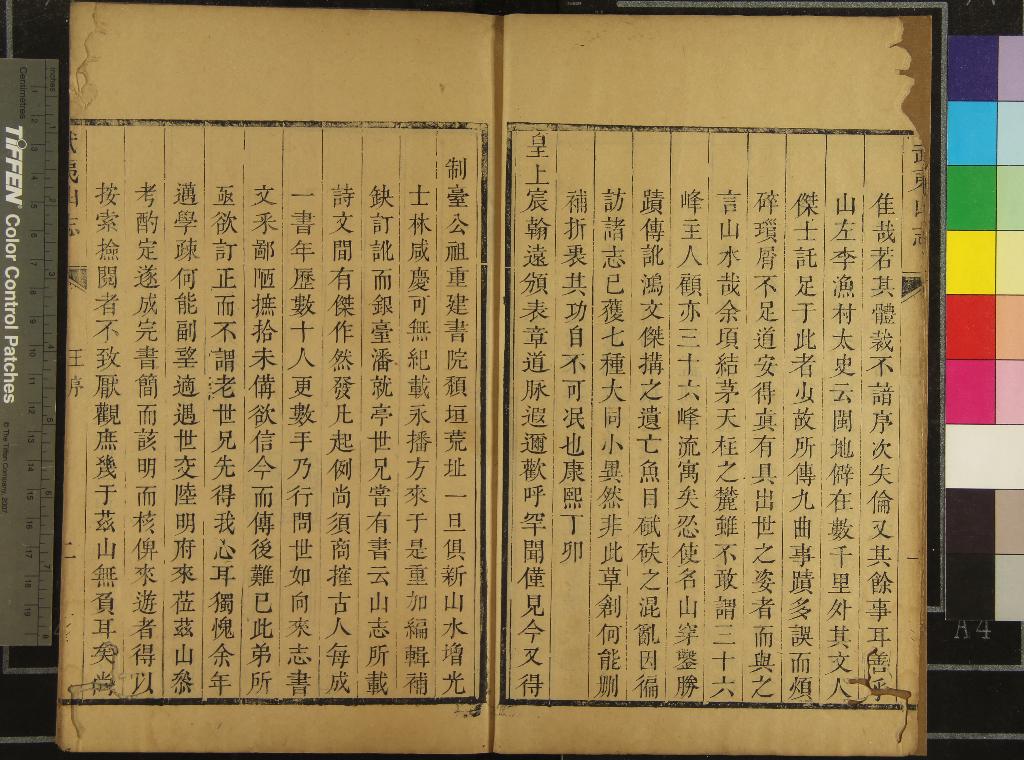 隹哉若其體裁不諳序次失倫又其餘事耳善乎
山左李漁村太史云閩地僻在數千里外其文人
傑士託足于此者少故所傳九曲事蹟多誤而煩
碎瑣屑不足道安得真有具出世之姿者而與之
言山水哉余頃結茅天柱之麓雖不敢謂三十六
峰主人顧亦三十六峰流寓矣忍使名山穿鑿勝
蹟傳訛鴻文傑搆之遺亡魚目碔砆之混亂因徧
訪諸志已獲七種大同小異然非此草創何能刪
補折衷其功自不可冺也康熙丁卯
皇上宸翰遠頒表章道脉遐邇歡呼罕聞僅見今又得
制臺公祖重建書院頹垣荒址一旦俱新山水增光
士林咸慶可無紀載永播方來于是重加編輯補
缺訂訛而銀臺潘就亭世兄嘗有書云山志所載
詩文間有傑作然發凡起例尚須商搉古人每成
一書年歷數十人更數手乃行問世如向來志書
文釆鄙陋摭拾未備欲信今而傳後難已此弟所
亟欲訂正而不謂老世兄先得我心耳獨愧余年
邁學疎何能副望適遇世交陸明府來蒞茲山叅
考酌定遂成完書簡而該明而核俾來遊者得以
按索撿閱者不致厭觀庶幾于茲山無負耳矣尚
武夷山志
王序
二
武夷山志
TIFFEN Color Control Patches
© The Tiffen Company, 2007
Centimetres
Inches
A4